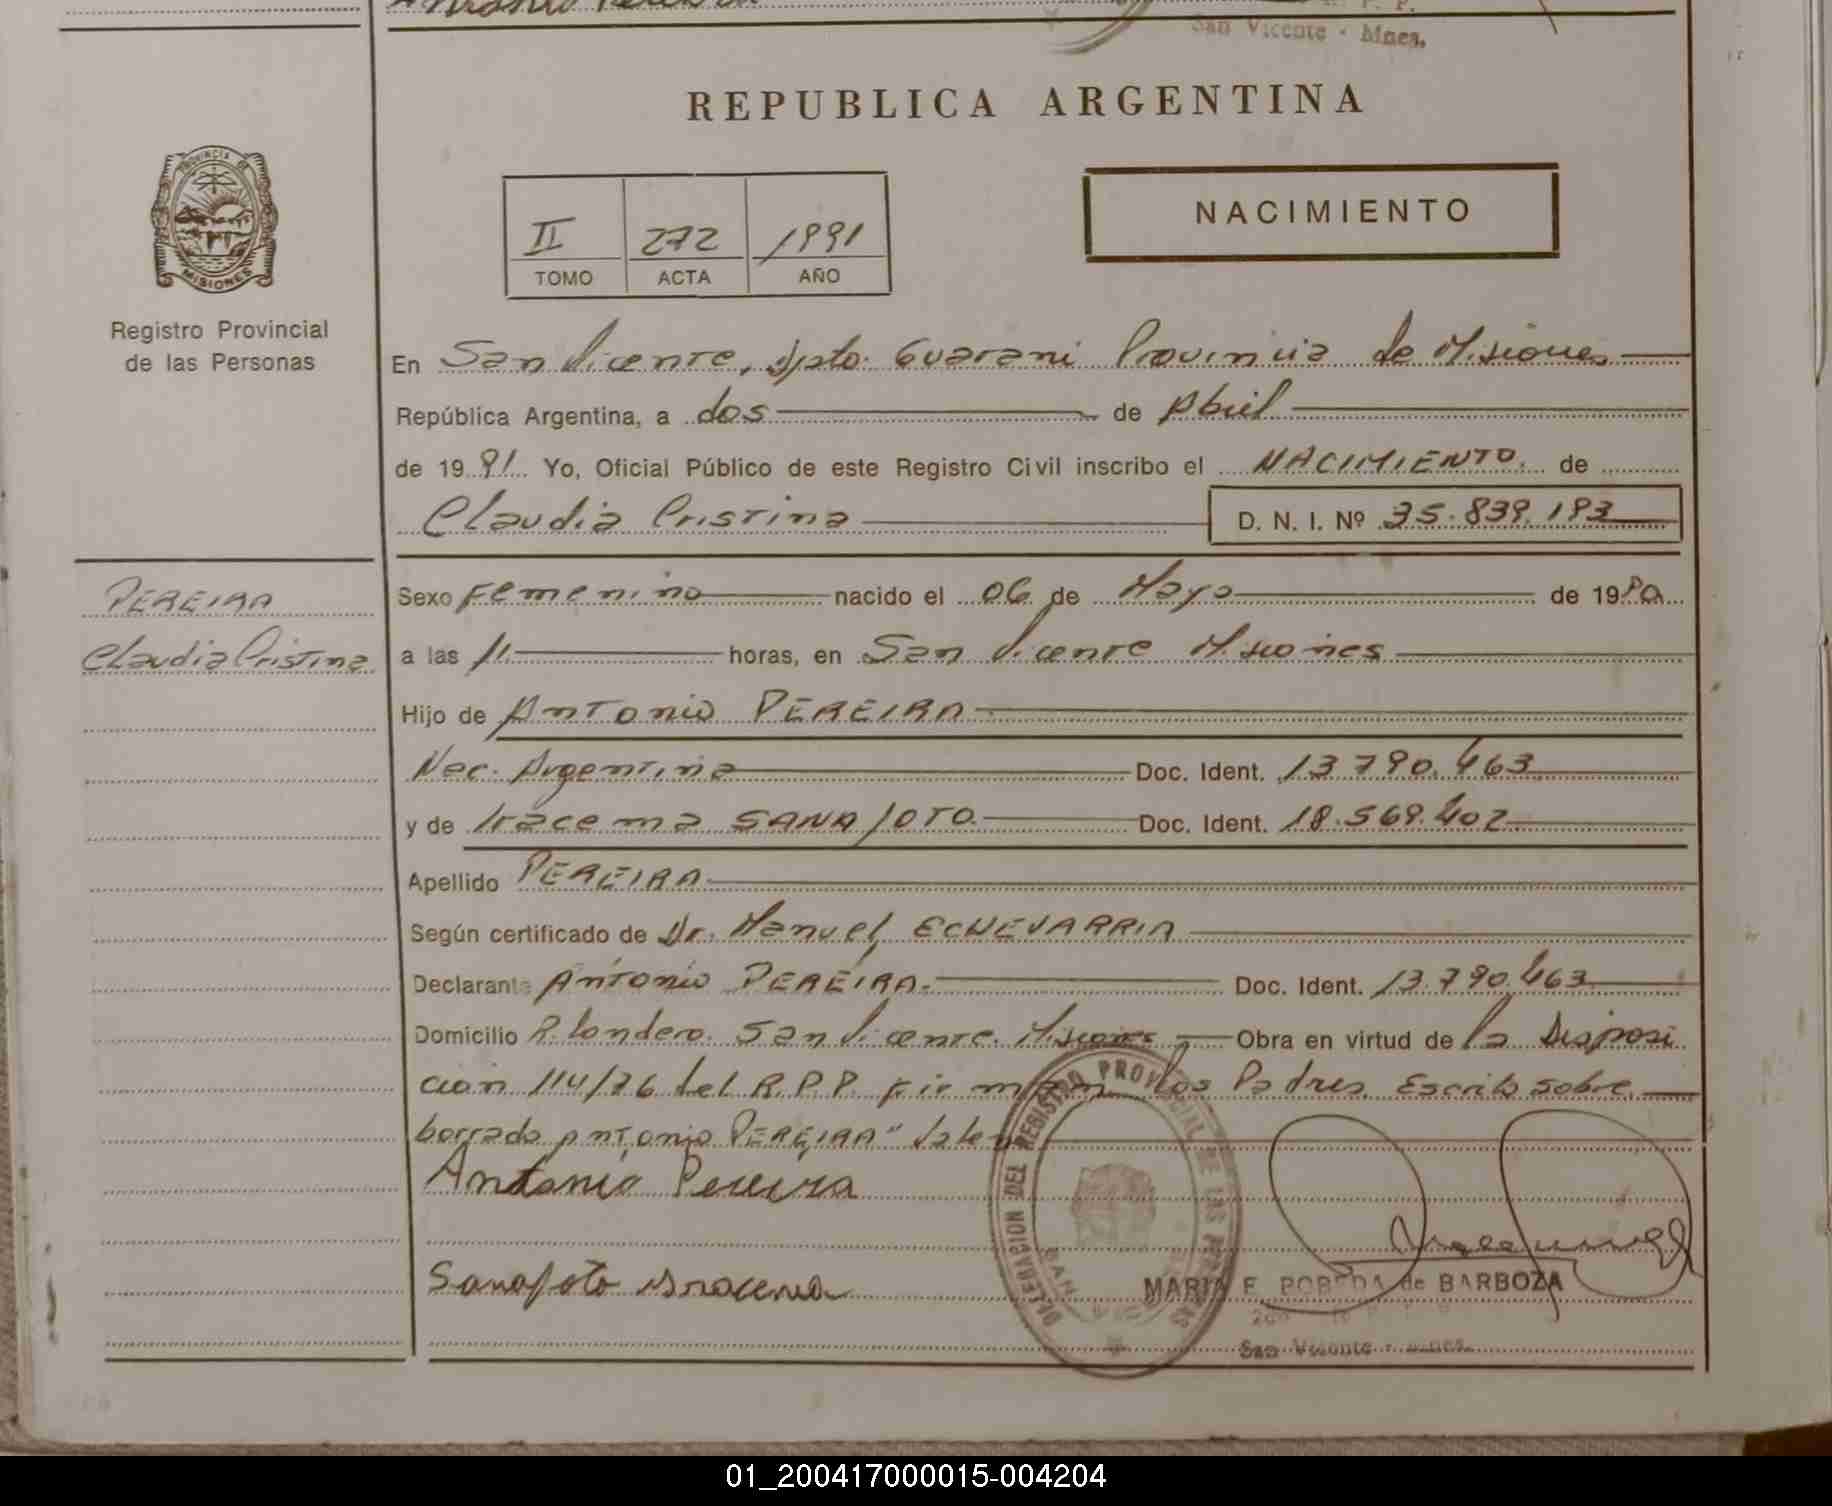 Antonio Pereira
San Vicente - Mnes.
REPUBLICA ARGENTINA
PROVINCIA DE
MISIONES
Registro Provincial
de las Personas
II 272 1991
TOMO ACTA AÑO
NACIMIENTO
En San Vicente, Dpto. Guarani Provincia de Misiones
República Argentina, a dos de Abril
de 1991 Yo, Oficial Público de este Registro Civil inscribo el NACIMIENTO. de
Claudia Cristina D. N. I. Nº 35.839.193
PEREIRA
Claudia Cristina
Sexo Femenino nacido el 06 de Mayo de 19
a las 11 horas, en San Vicente Misiones
Hijo de Antonio PEREIRA
Nac. Argentina Doc. Ident. 13.790.463
y de Iracema SANAJOTO. Doc. Ident. 18.569.402
Apellido PEREIRA
Según certificado de Dr. Manuel ECHEVARRIA
Declarante Antonio PEREIRA. Doc. Ident. 13.790.463
Domicilio R. Londero. San Vicente. Misiones Obra en virtud de la Disposi
ción 114/76 del R.P.P. Firman los Padres. Escrito sobre
borrado Antonio PEREIRA" Valen
Antonio Pereira
Sanajoto Iracema
DELEGACION DEL REGISTRO PROVINCIAL DE LAS PERSONAS
SAN
MARIA E. POBEDA de BARBOZA
San Vicente - Mnes.
01_200417000015-004204